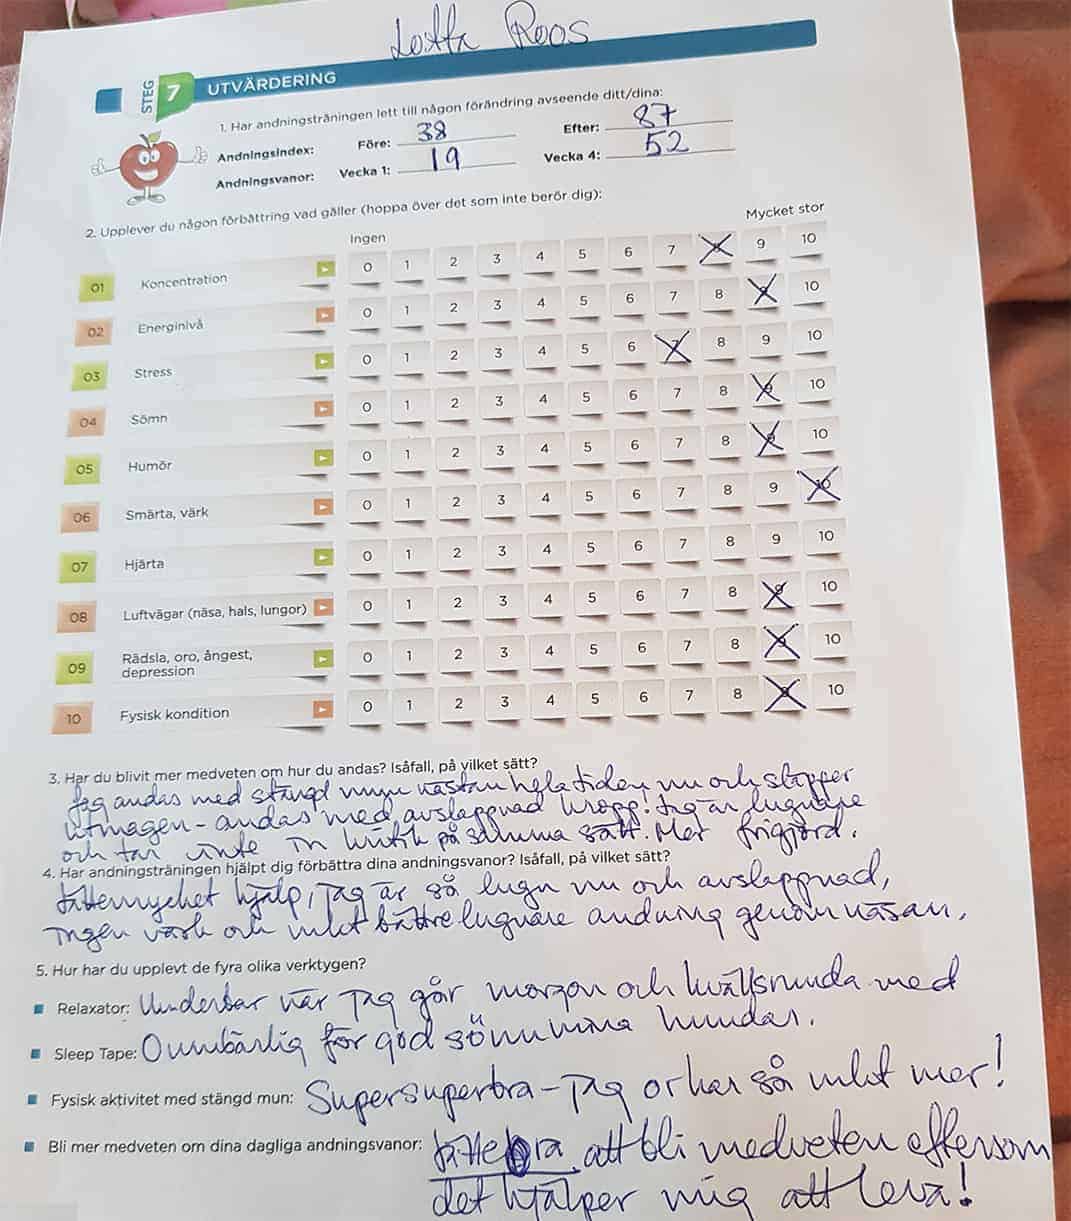 Lotta Roos
STEG 7 UTVÄRDERING
1. Har andningsträningen lett till någon förändring avseende ditt/dina:
Andningsindex: Före: 38 Efter: 87
Andningsvanor: Vecka 1: 19 Vecka 4: 52
2. Upplever du någon förbättring vad gäller (hoppa över det som inte berör dig):
Ingen Mycket stor
01 Koncentration 0 1 2 3 4 5 6 7 8 9 10
02 Energinivå 0 1 2 3 4 5 6 7 8 9 10
03 Stress 0 1 2 3 4 5 6 7 8 9 10
04 Sömn 0 1 2 3 4 5 6 7 8 9 10
05 Humör 0 1 2 3 4 5 6 7 8 9 10
06 Smärta, värk 0 1 2 3 4 5 6 7 8 9 10
07 Hjärta 0 1 2 3 4 5 6 7 8 9 10
08 Luftvägar (näsa, hals, lungor) 0 1 2 3 4 5 6 7 8 9 10
09 Rädsla, oro, ångest, depression 0 1 2 3 4 5 6 7 8 9 10
10 Fysisk kondition 0 1 2 3 4 5 6 7 8 9 10
3. Har du blivit mer medveten om hur du andas? Isåfall, på vilket sätt?
Jag andas med stängd mun nästan hela tiden nu och släpper
ut magen - andas med avslappnad kropp! Jag är lugnare
och tar inte in kritik på samma sätt. Mer frigjord.
4. Har andningsträningen hjälpt dig förbättra dina andningsvanor? Isåfall, på vilket sätt?
Jättemycket hjälp, jag är så lugn nu och avslappnad,
ingen värk och mkt bättre lugnare andning genom näsan.
5. Hur har du upplevt de fyra olika verktygen?
Relaxator: Underbar när jag går morgon och kvällsrunda med
mina hundar.
Sleep Tape: Oumbärlig för god sömn
Fysisk aktivitet med stängd mun: Supersuperbra - jag orkar så mkt mer!
Bli mer medveten om dina dagliga andningsvanor: Jättebra att bli medveten eftersom
det hjälper mig att leva!